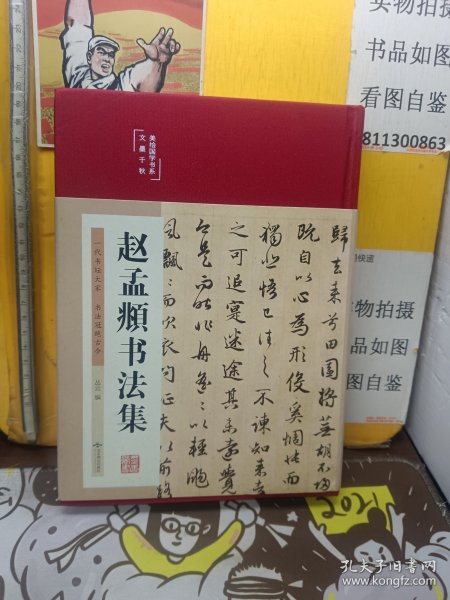 实物拍摄
书品如图
看图自鉴
811300863
美绘国学书系
文墨千秋
赵孟頫书法集
一代书坛大家 书法冠绝古今
丛云 编
歸去来兮田園將蕪胡不歸
既自以心為形役奚惆悵而
獨悲悟已往之不諫知来者
之可追寔迷途其未遠覺
今是而昨非舟遥遥以輕颺
風飄飄而吹衣問征夫以前路
快递
实物拍摄
品如图
图自鉴
2021
孔夫子旧书网
www.kongfz.com